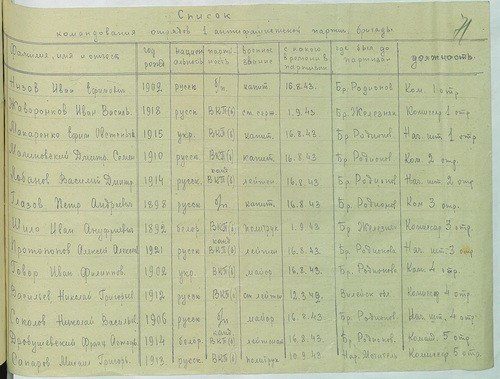 Список
командования отрядов 1 антифашистской партиз. бригады
71
Фамилия, имя и отчест. год рожд. национальность партийность военное звание с какого времени в партизан. где был до партизан должность
Иван Ефимович 1902 русск б/п капит. 16.8.43. Бр. Родионов Ком. 1 отр.
Жаворонков Иван Васил. 1918 русск ВКП(б) 1.9.43 Бр Железняк Комиссар 1 отр
Макаренко Ефим 1915 укр. ВКП(б) капит. 16.8.43 Бр. Родионов Нач. шт. 1 отр
Дмитр. Семен 1910 русск ВКП(б) капит. 16.8.43. Бр. Родионов Ком. 2 отр.
Василий Дмитр 1914 русск. канд ВКП(б) лейтен 16.8.43 Бр. Родионов Нач. шт. 2 отр.
Глазов Петр Андреевич 1898 русск б/п капит. 16.8.43. Бр. Родионов Ком 3 отр.
Шило Иван Ануфриевич 1892 белор ВКП(б) политрук 1.9.43 Бр Железняк Комиссар 3 отр.
Протопопов Алексей Алексеев 1921 русск ВКП(б) лейтен 16.8.43. Бр Родионова Нач. шт. 3 отр
Говор Иван Филиппов. 1902 укр. ВКП(б) майор 16.8.43. Бр. Родионова Ком. 4 отр.
Васильев Николай Григорьев 1912 русск ВКП(б) ст лейтен 12.3.42. Вилейск обл. Комиссар 4 отр.
Соколов Николай Васильев. 1906 русск б/п майор 16.8.43. Бр. Родионов. Нач. шт. 4 отр
1914 белор. канд ВКП(б) лейтенан 16.8.43 Бр. Родионов. Команд. 5 отр
Сапаров Михаил Григор. 1913 русск. ВКП(б) политрук 10.9.43 Нар. Мститель Комиссар 5 отр